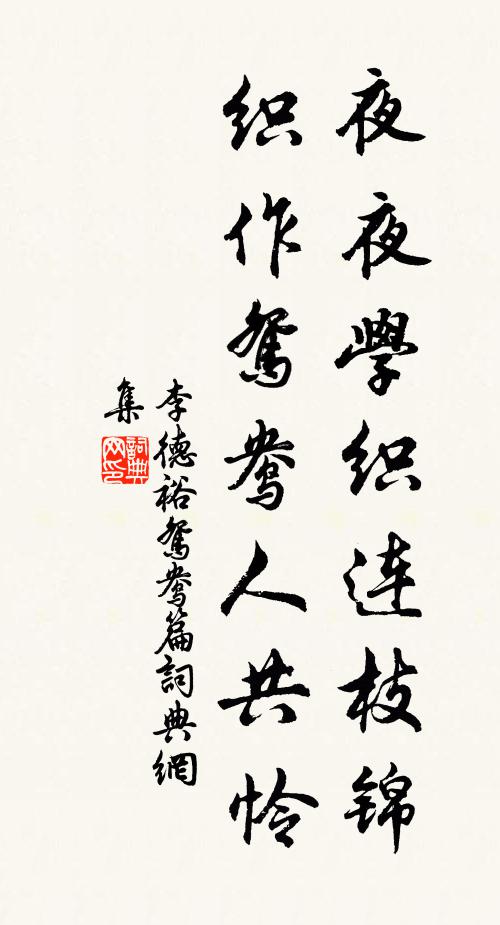 夜夜學织连枝锦
织作鸳鸯人共怜
李德裕鸳鸯篇詞典網
集
詞典
网印